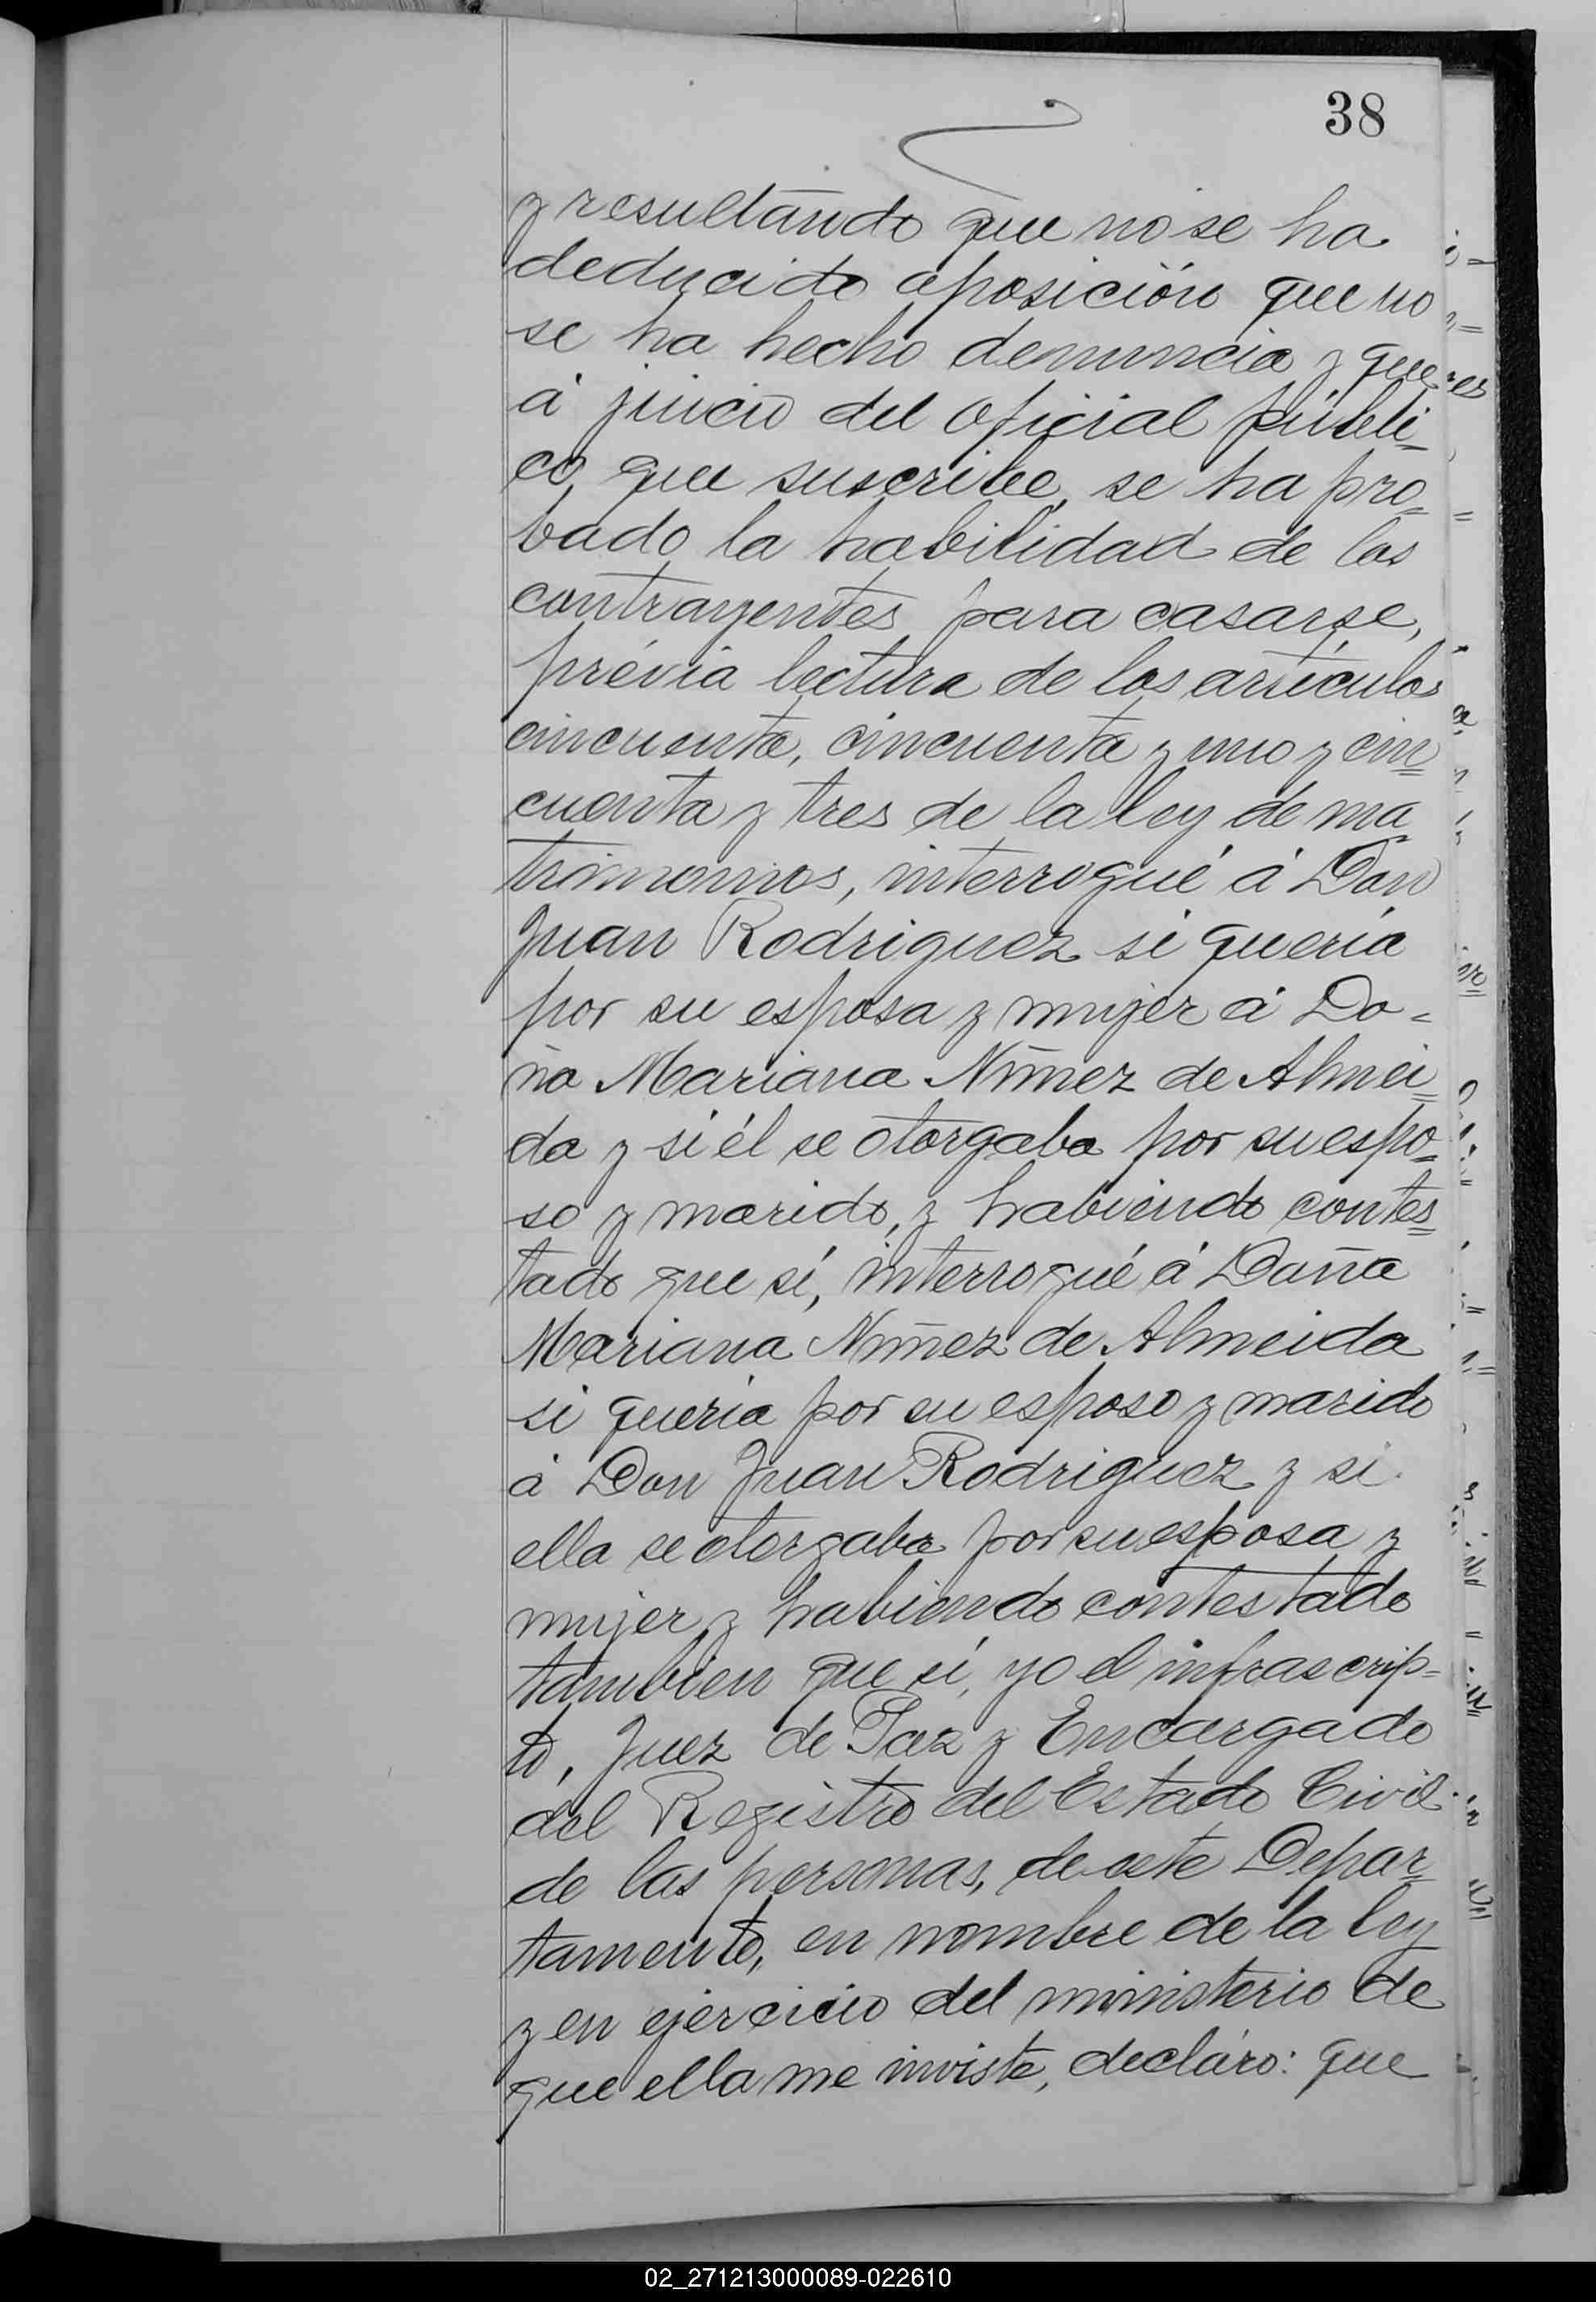 38
y resultando que no se ha
deducido oposición que no
se ha hecho denuncia y que
á juicio del oficial públi-
co que suscribe, se ha pro=
bado la habilidad de los
contrayentes para casarse,
prévia lectura de los artículos
cincuenta, cincuenta y uno y cin=
cuenta y tres de la ley de ma
trimonios, interrogué á Don
Juan Rodriguez si quería
por su esposa y mujer á Do=
ña Mariana Nuñez de Almei=
da y si él se otorgaba por su espo=
so y marido, y habiendo contes=
tado que sí, interrogué á Doña
Mariana Nuñez de Almeida
si quería por su esposo y marido
á Don Juan Rodriguez y si
ella se otorgaba por su esposa y
mujer y habiendo contestado
tambien que sí, yo el infrascrip=
to, Juez de Paz y Encargado
del Registro del Estado Civil
de las personas, de este Depar=
tamento, en nombre de la ley
y en ejercicio del ministerio de
que ella me inviste, decláro: que
02_271213000089-022610